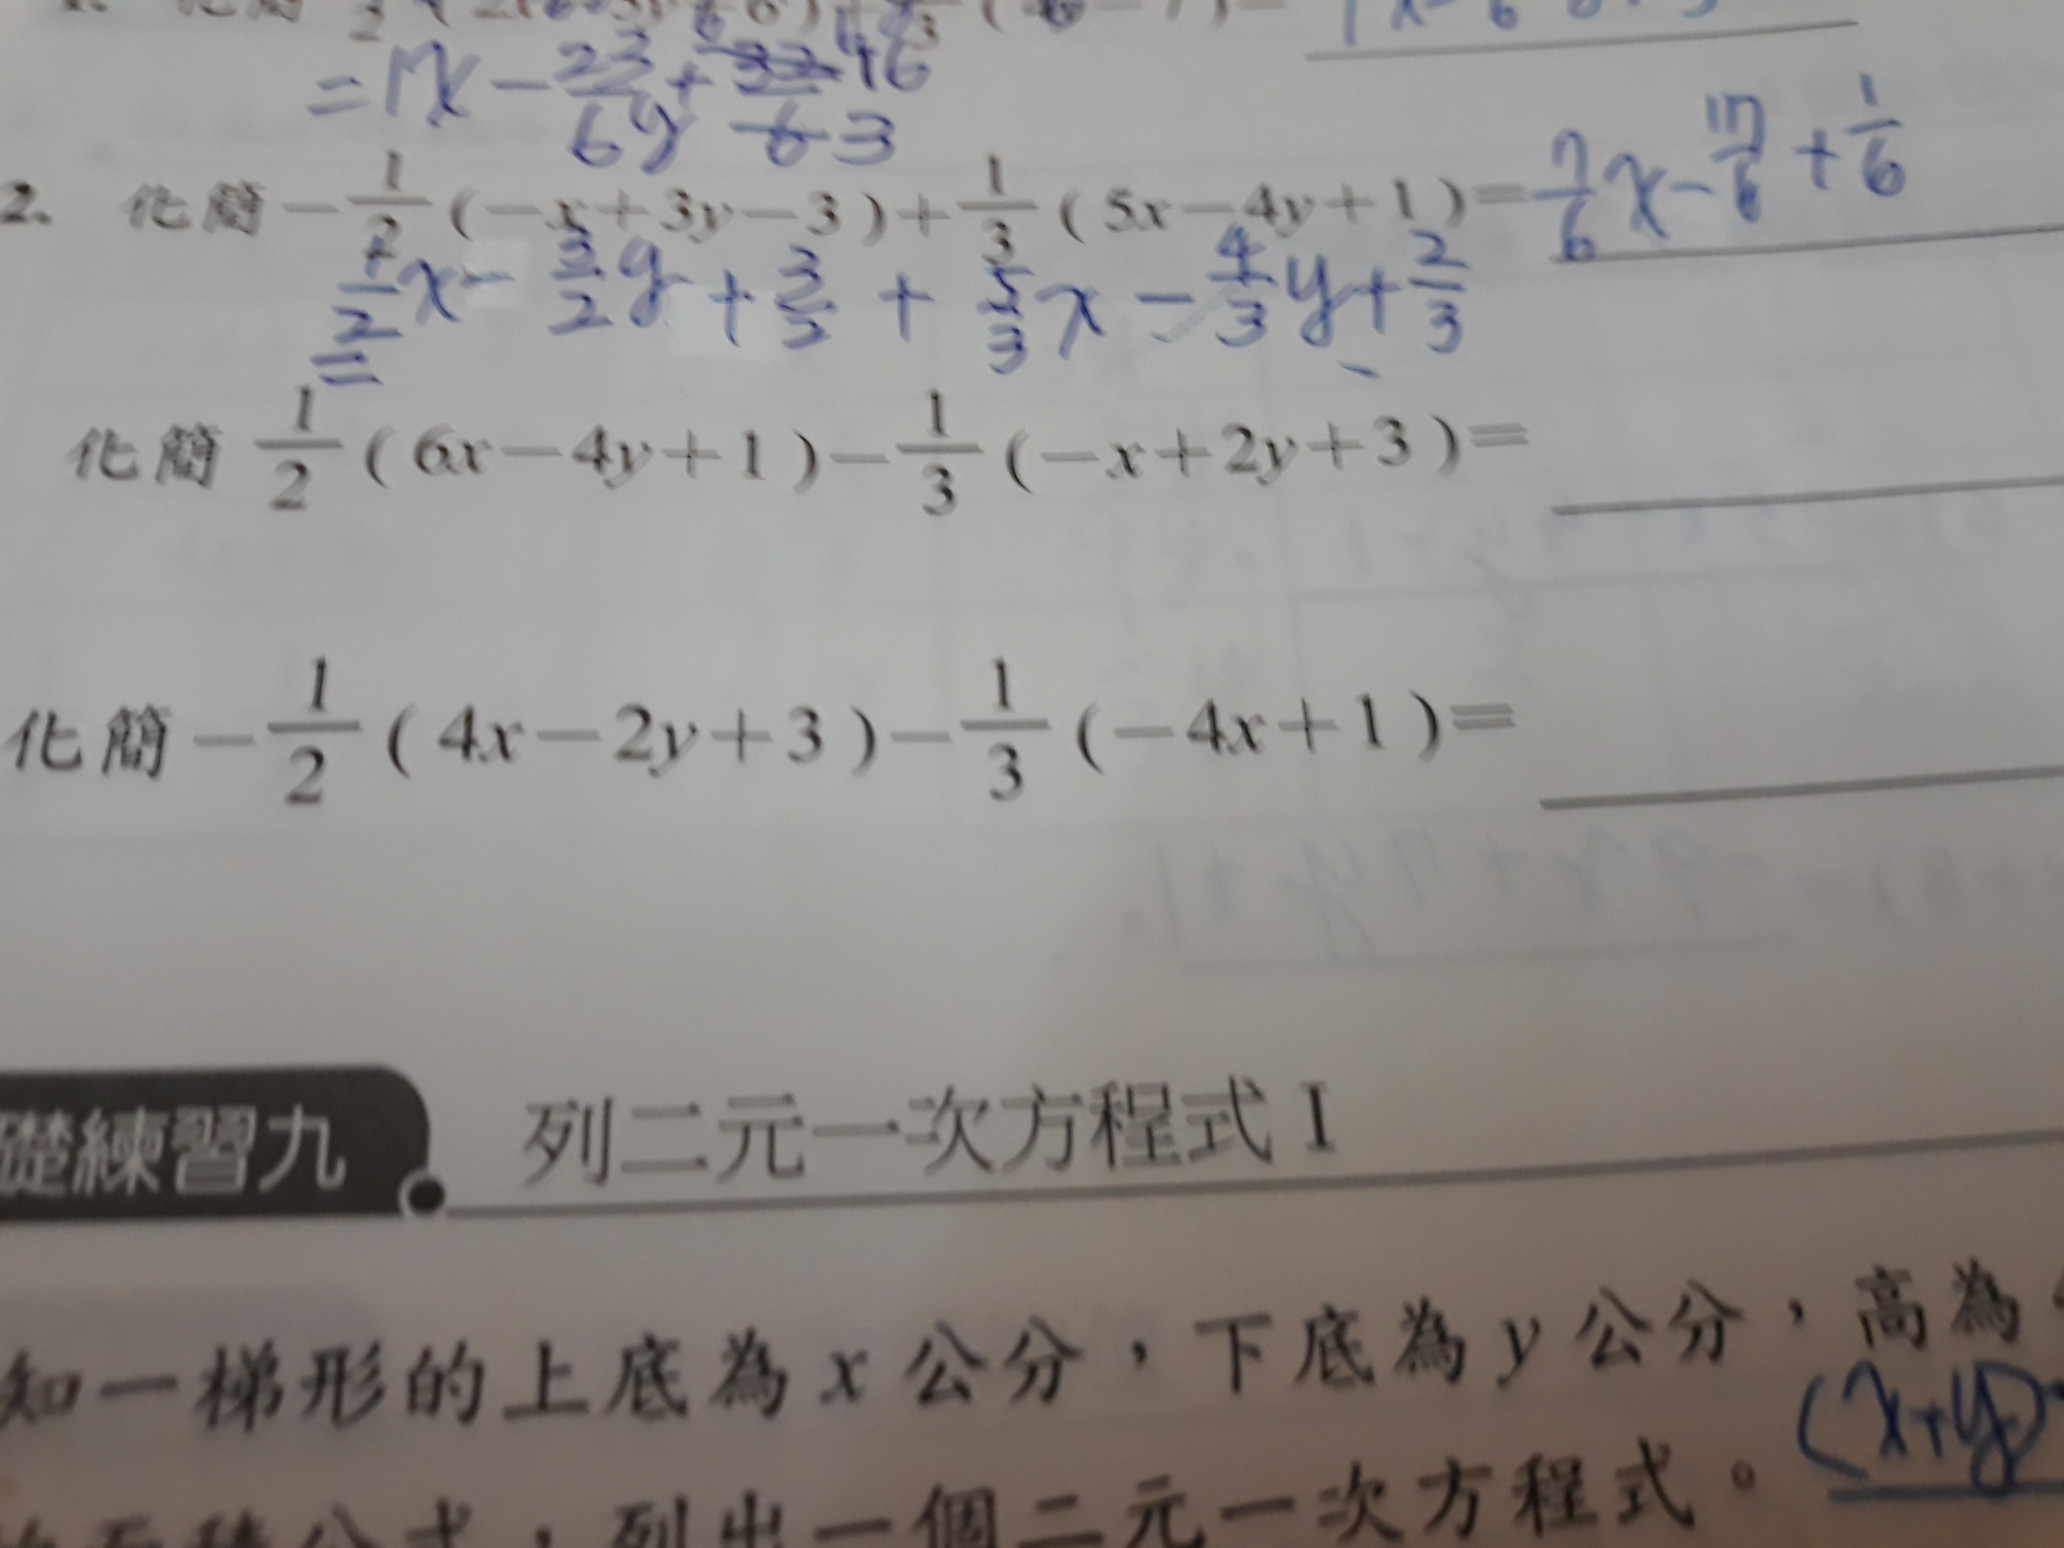 = 17x − 23/6y + 46/3
2. 化簡 −1/2 ( −x + 3y − 3 ) + 1/3 ( 5x − 4y + 1 ) = 7/6 x − 17/6 + 1/6
1/2 x − 3/2 y + 3/2 + 5/3 x − 4/3 y + 2/3
=
化簡 1/2 ( 6x − 4y + 1 ) − 1/3 ( −x + 2y + 3 ) =
化簡 −1/2 ( 4x − 2y + 3 ) − 1/3 ( −4x + 1 ) =
礎練習九 列二元一次方程式 I
知一梯形的上底為 x 公分，下底為 y 公分，高為
(x+y)
，列出一個二元一次方程式。